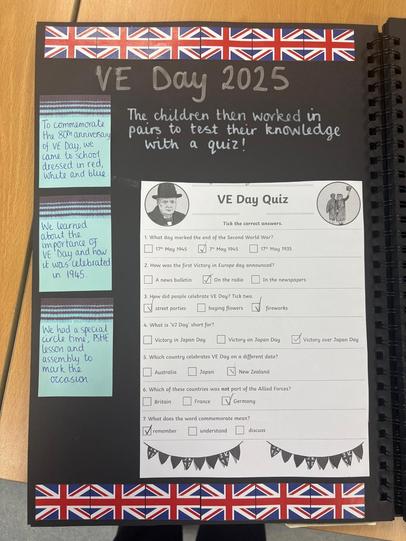 VE Day 2025
To commemorate
the 80th anniversary
of VE Day, we
came to school
dressed in red,
white and blue
We learned
about the
importance of
VE Day and how
it was celebrated
in 1945.
We had a special
circle time, PSHE
lesson and
assembly to
mark the
occasion
The children then worked in
pairs to test their knowledge
with a quiz!
VE Day Quiz
Tick the correct answers.
1. What day marked the end of the Second World War?
17th May 1945 7th May 1945 17th May 1935
2. How was the first Victory in Europe day announced?
A news bulletin On the radio In the newspapers
3. How did people celebrate VE Day? Tick two.
street parties buying flowers fireworks
4. What is 'VJ Day' short for?
Victory in Japan Day Victory on Japan Day Victory over Japan Day
5. Which country celebrates VE Day on a different date?
Australia Japan New Zealand
6. Which of these countries was not part of the Allied Forces?
Britain France Germany
7. What does the word commemorate mean?
remember understand discuss